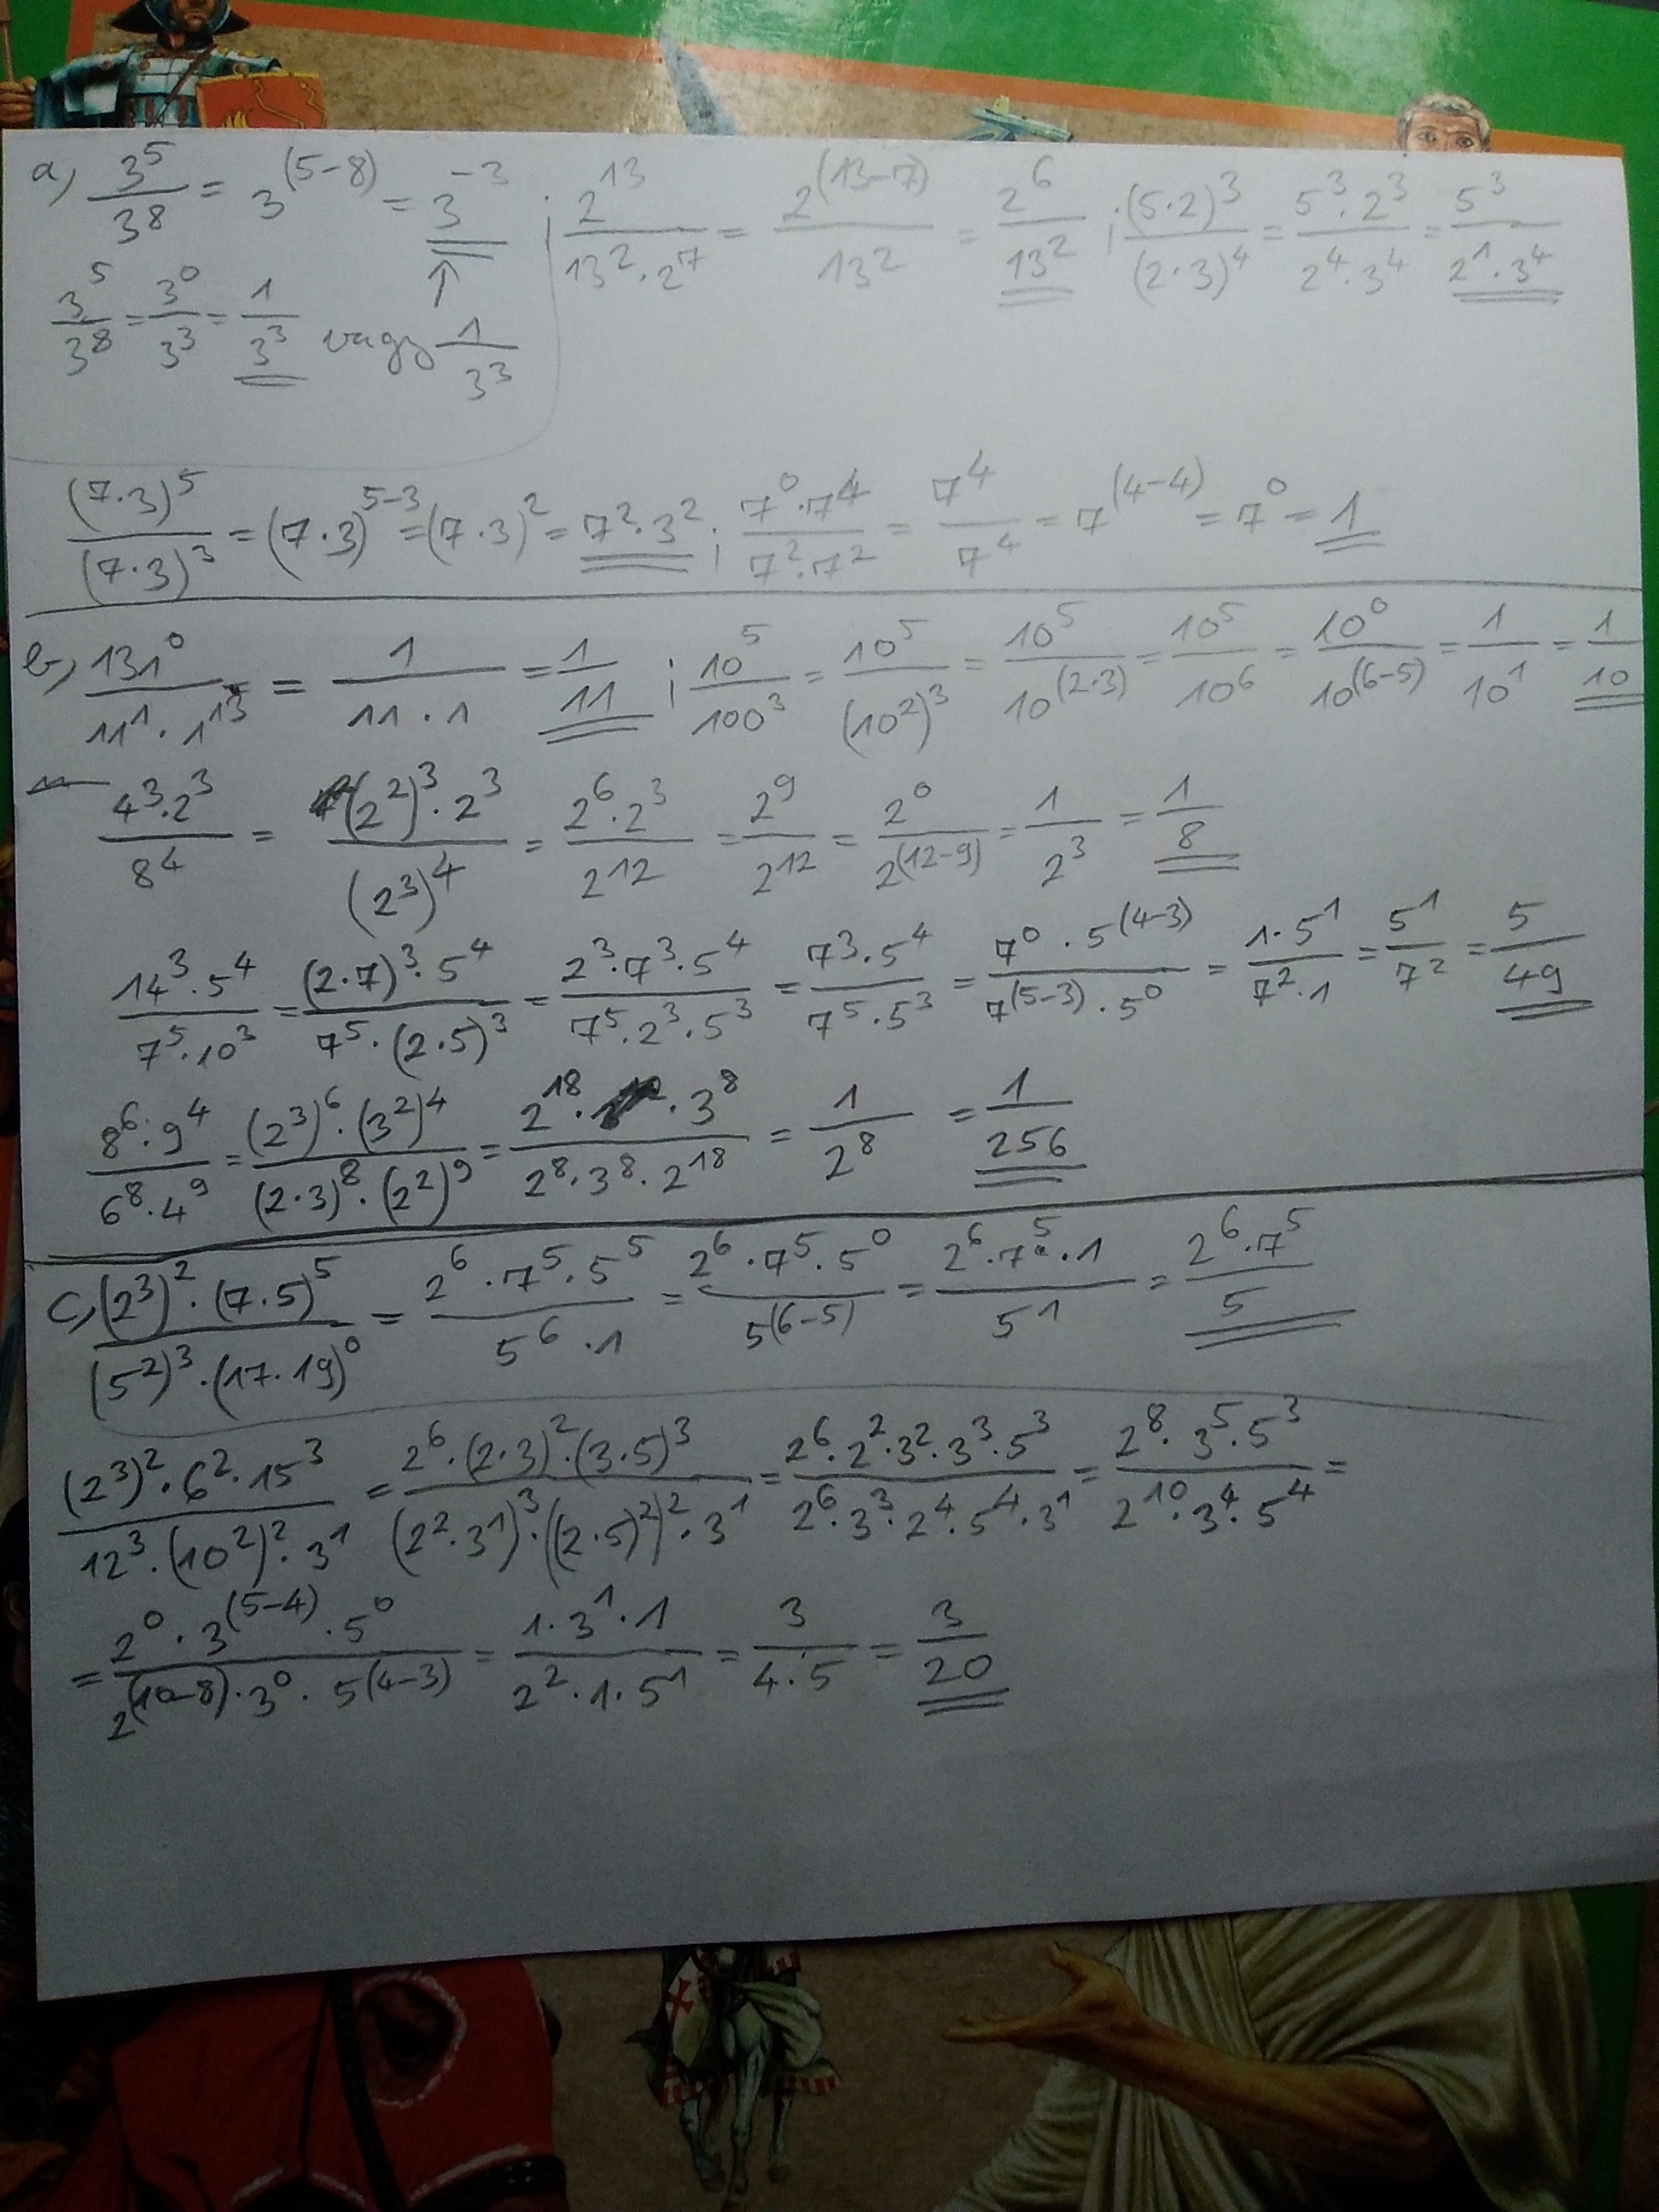 a, 3⁵/3⁸ = 3⁽⁵⁻⁸⁾ = 3⁻³ ; 2¹³/(13²·2⁷) = 2⁽¹³⁻⁷⁾/13² = 2⁶/13² ; (5·2)³/(2·3)⁴ = 5³·2³/(2⁴·3⁴) = 5³/(2¹·3⁴)
↑
3⁵/3⁸ = 3⁰/3³ = 1/3³ vagy 1/3³
(7·3)⁵/(7·3)³ = (7·3)⁵⁻³ = (7·3)² = 7²·3² ; 7⁰·7⁴/(7²·7²) = 7⁴/7⁴ = 7⁽⁴⁻⁴⁾ = 7⁰ = 1
b, 131⁰/(11¹·1¹³) = 1/(11·1) = 1/11 ; 10⁵/100³ = 10⁵/(10²)³ = 10⁵/10⁽²·³⁾ = 10⁵/10⁶ = 10⁰/10⁽⁶⁻⁵⁾ = 1/10¹ = 1/10
4³·2³/8⁴ = (2²)³·2³/(2³)⁴ = 2⁶·2³/2¹² = 2⁹/2¹² = 2⁰/2⁽¹²⁻⁹⁾ = 1/2³ = 1/8
14³·5⁴/(7⁵·10³) = (2·7)³·5⁴/(7⁵·(2·5)³) = 2³·7³·5⁴/(7⁵·2³·5³) = 7³·5⁴/(7⁵·5³) = 7⁰·5⁽⁴⁻³⁾/(7⁽⁵⁻³⁾·5⁰) = 1·5¹/(7²·1) = 5¹/7² = 5/49
8⁶·9⁴/(6⁸·4⁹) = (2³)⁶·(3²)⁴/((2·3)⁸·(2²)⁹) = 2¹⁸·3⁸/(2⁸·3⁸·2¹⁸) = 1/2⁸ = 1/256
c, (2³)²·(7·5)⁵/((5²)³·(17·19)⁰) = 2⁶·7⁵·5⁵/(5⁶·1) = 2⁶·7⁵·5⁰/5⁽⁶⁻⁵⁾ = 2⁶·7⁵·1/5¹ = 2⁶·7⁵/5
(2³)²·6²·15³/(12³·(10²)²·3¹) = 2⁶·(2·3)²·(3·5)³/((2²·3¹)³·((2·5)²)²·3¹) = 2⁶·2²·3²·3³·5³/(2⁶·3³·2⁴·5⁴·3¹) = 2⁸·3⁵·5³/(2¹⁰·3⁴·5⁴) =
= 2⁰·3⁽⁵⁻⁴⁾·5⁰/(2⁽¹⁰⁻⁸⁾·3⁰·5⁽⁴⁻³⁾) = 1·3¹·1/(2²·1·5¹) = 3/(4·5) = 3/20